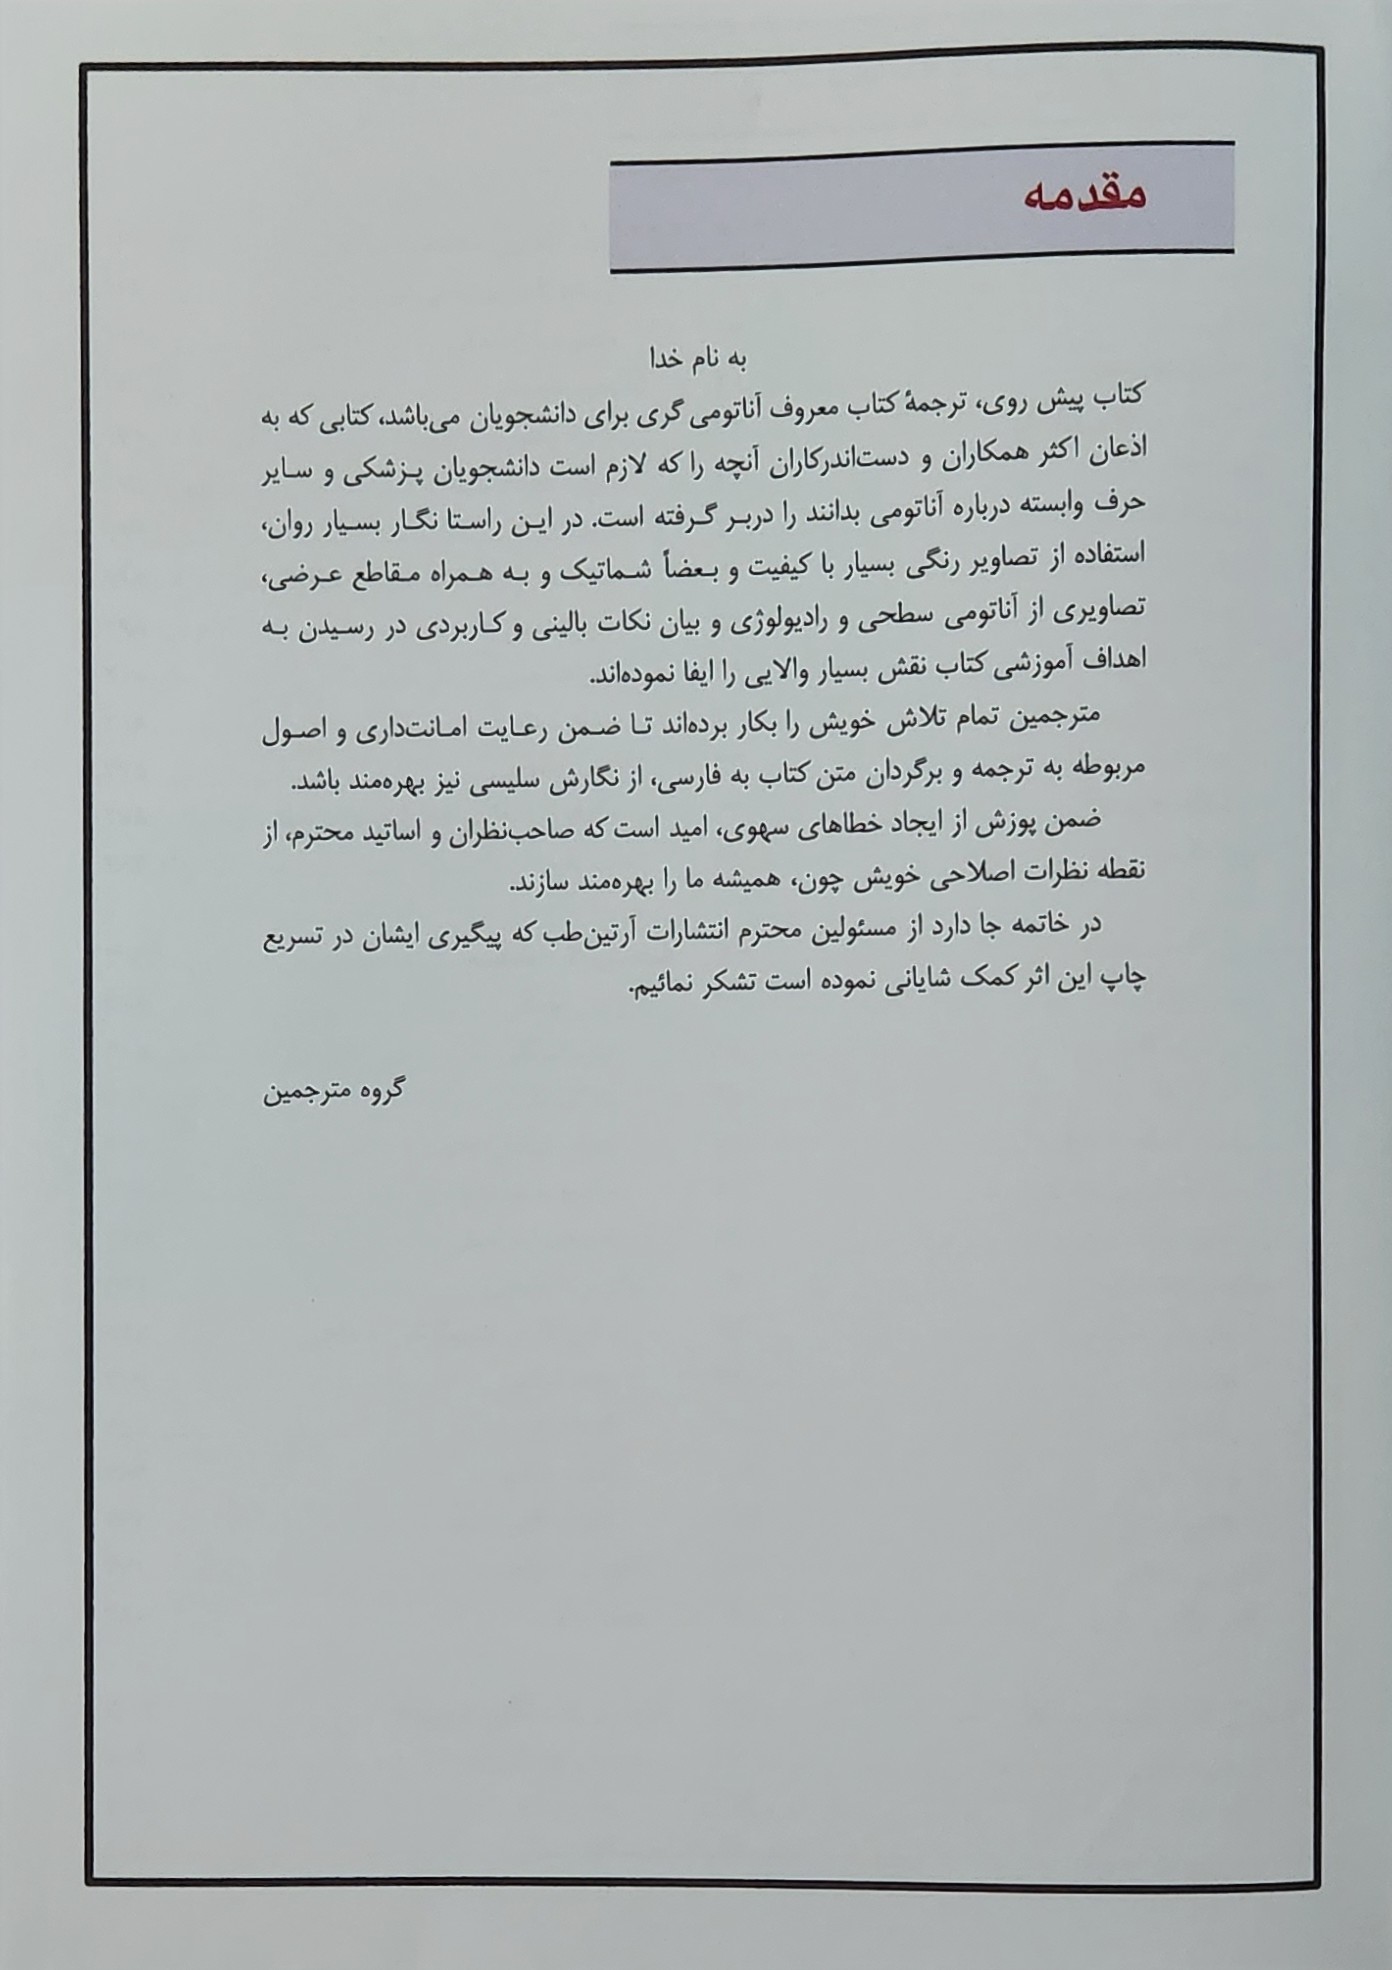 مقدمه
به نام خدا
کتاب پیش روی، ترجمهٔ کتاب معروف آناتومی گری برای دانشجویان می‌باشد، کتابی که به
اذعان اکثر همکاران و دست‌اندرکاران آنچه را که لازم است دانشجویان پزشکی و سایر
حرف وابسته درباره آناتومی بدانند را دربر گرفته است. در این راستا نگار بسیار روان،
استفاده از تصاویر رنگی بسیار با کیفیت و بعضاً شماتیک و به همراه مقاطع عرضی،
تصاویری از آناتومی سطحی و رادیولوژی و بیان نکات بالینی و کاربردی در رسیدن به
اهداف آموزشی کتاب نقش بسیار والایی را ایفا نموده‌اند.
مترجمین تمام تلاش خویش را بکار برده‌اند تا ضمن رعایت امانت‌داری و اصول
مربوطه به ترجمه و برگردان متن کتاب به فارسی، از نگارش سلیسی نیز بهره‌مند باشد.
ضمن پوزش از ایجاد خطاهای سهوی، امید است که صاحب‌نظران و اساتید محترم، از
نقطه نظرات اصلاحی خویش چون، همیشه ما را بهره‌مند سازند.
در خاتمه جا دارد از مسئولین محترم انتشارات آرتین‌طب که پیگیری ایشان در تسریع
چاپ این اثر کمک شایانی نموده است تشکر نمائیم.
گروه مترجمین